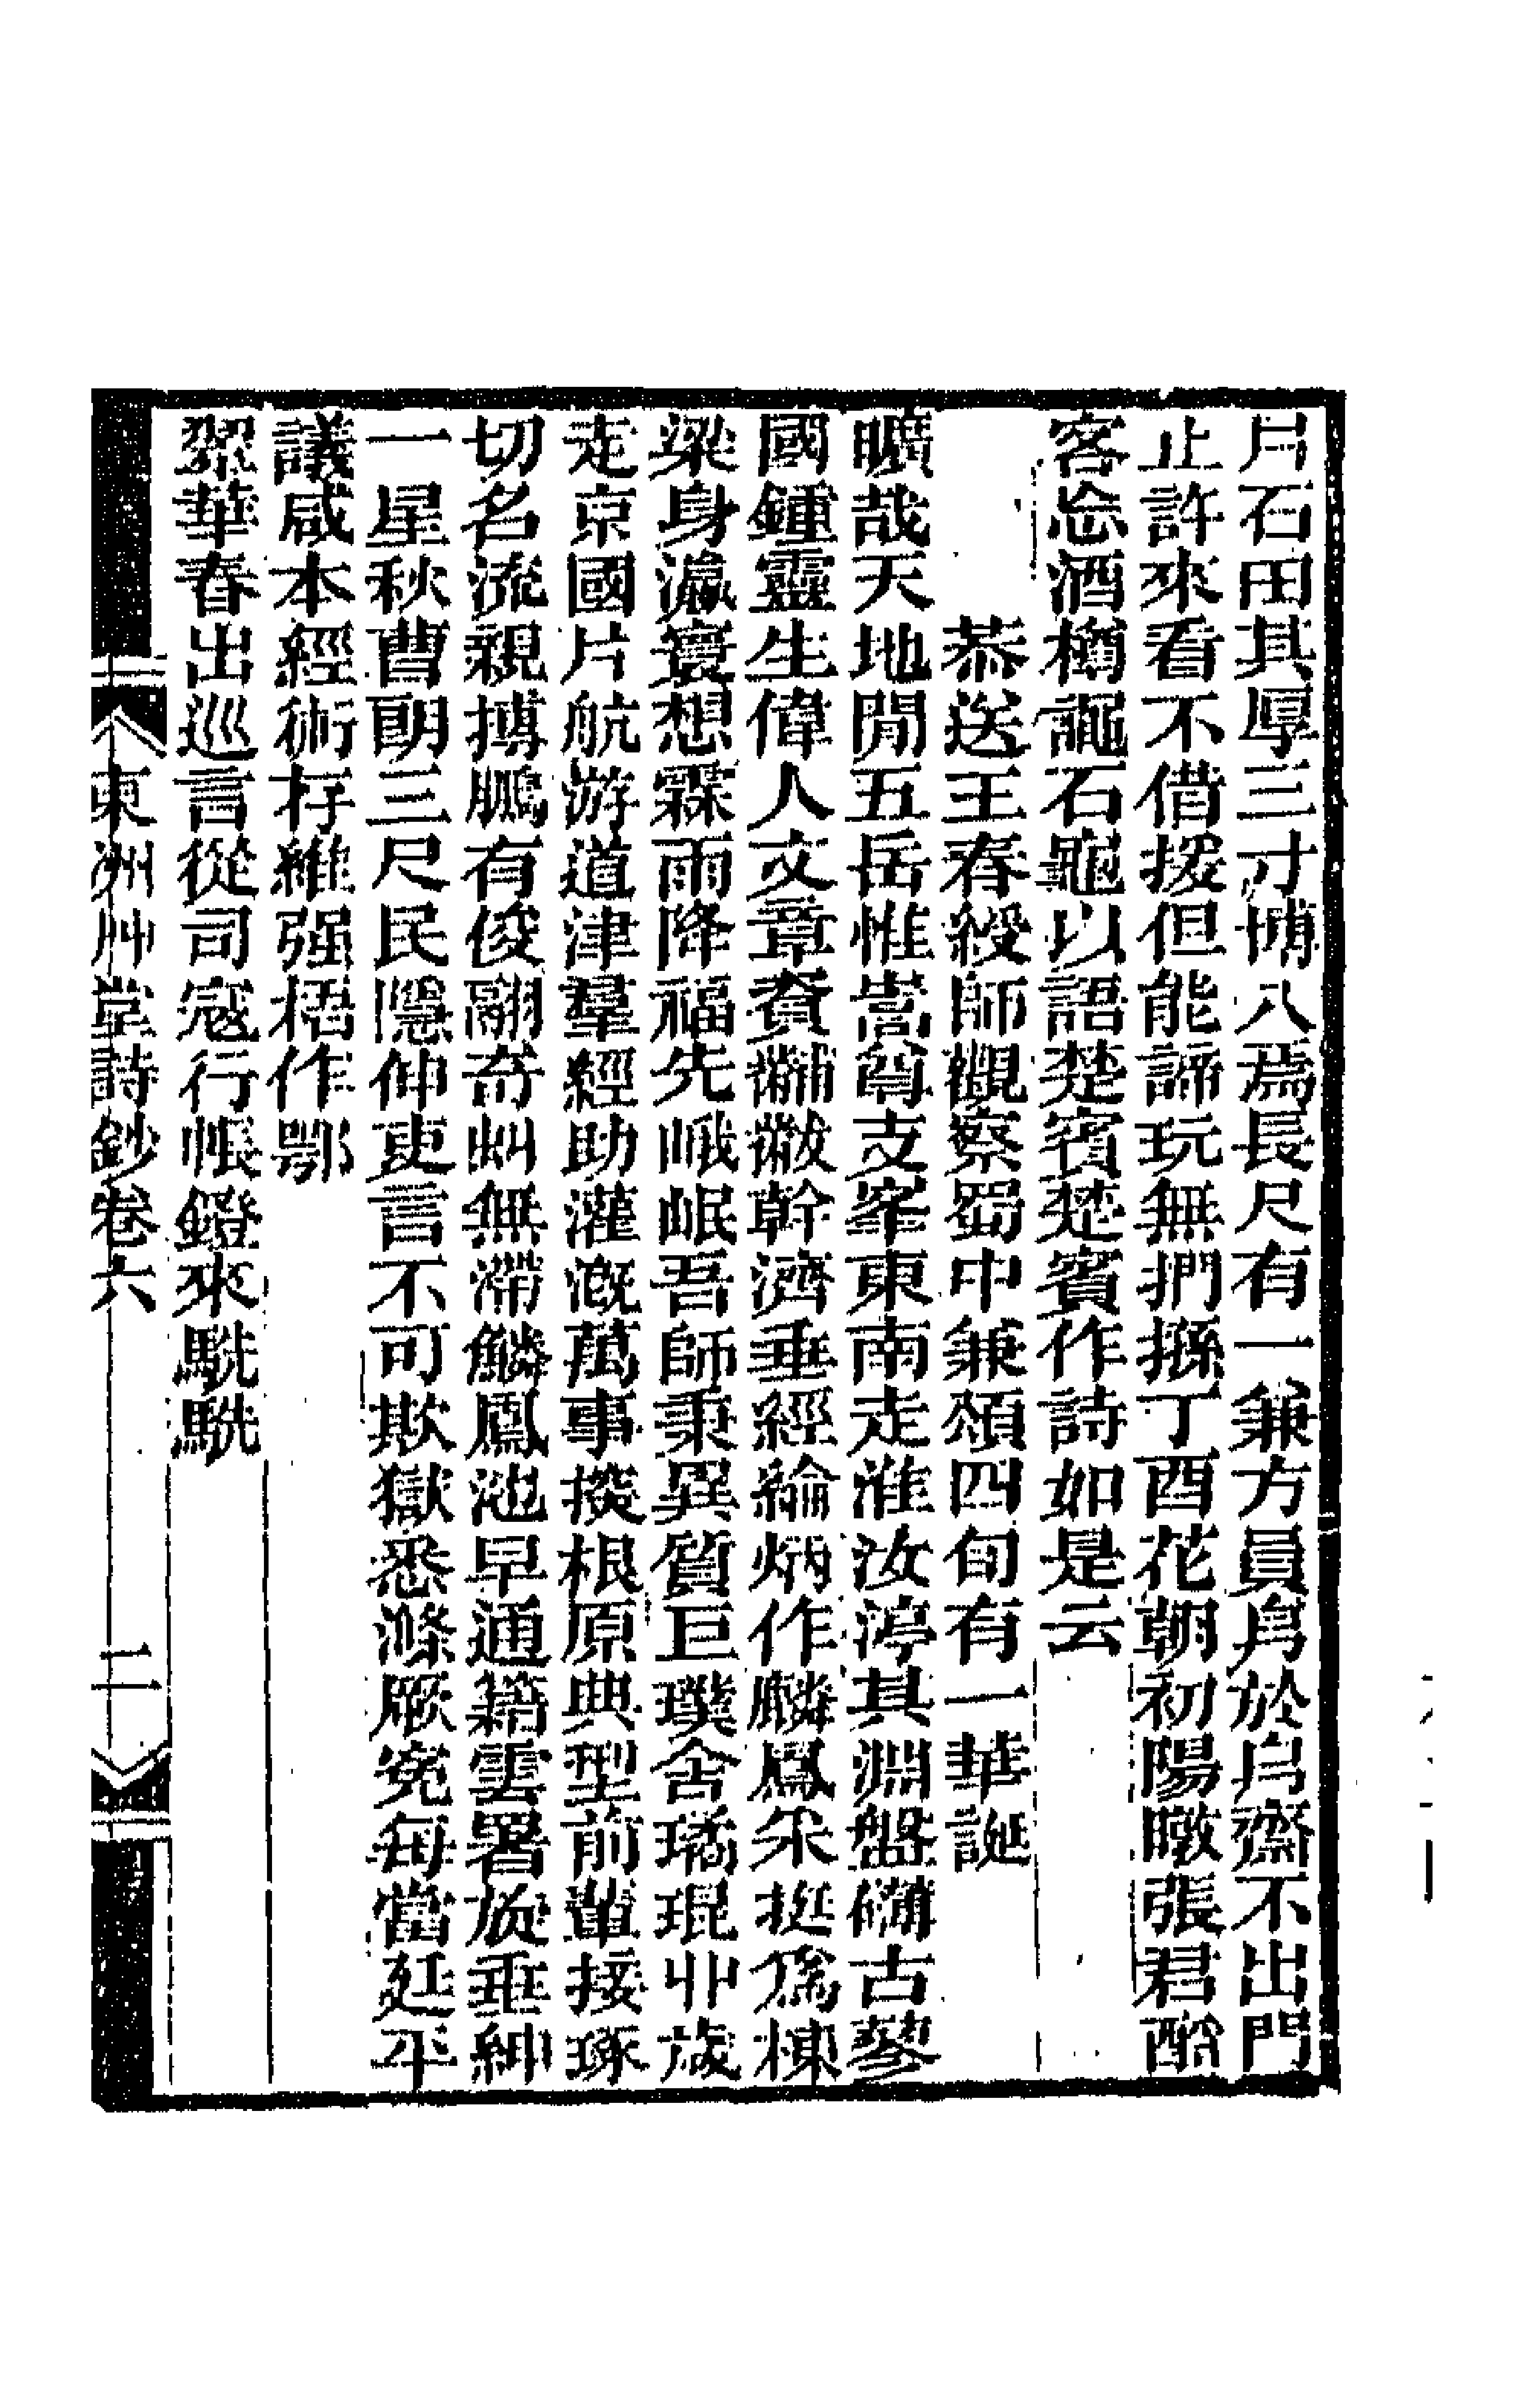 片石田其厚三寸博八焉長尺有一兼方員舄於舄齋不出門
止許來看不借拨但能諦玩無捫搎丁酉花朝初陽暾張君酚
客忘酒樽讔石龜以語楚賓楚賓作詩如是云
恭送王春綬師觀察蜀中兼頌四旬有一華誕
曠哉天地閒五岳惟嵩尊支峯東南走淮汝渟其淵盤礴古蓼
國鍾靈生偉人文章賁黼黻幹濟垂經綸炳作麟鳳采挺爲棟
梁身瀛寰想霖雨降福先峨岷吾師秉異質巨璞含璠琨丱歲
走京國片航游道津羣經助灌漑萬事揆根原典型前輩接琢
切名流親搏鵬有俊翮奇虯無滯鱗鳳池早通籍雲署旋垂紳
一星秋曹朗三尺民隱伸吏言不可欺獄悉滌厥寃每當延平
議咸本經術存維强梧作鄂
翠華春出巡言從司寇行帳鐙來駪駪
東洲艸堂詩鈔卷六
二